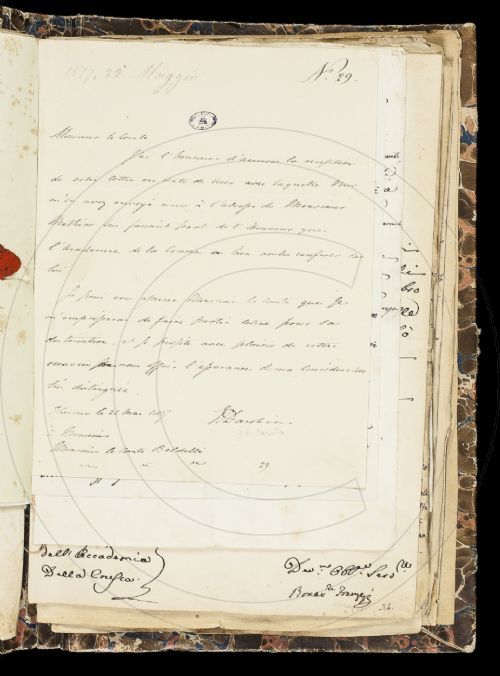 1817, 22 Maggio
N.º 29.
Monsieur le Comte
J'ai l'honneur d'accuser la reception
de votre lettre en date de hier avec laquelle Vous
m'en avez envoyé une, à l'adresse de Monsieur
Mathias lui faisant part de l'honneur que
l'Academie de la Crusca a bien voulu conferer sur
lui
Je puis vous assurer Monsieur le Comte que je
m'empresserai de faire partir cette pour sa
destination, et je profite avec plaisir de cette
occasion pour vous offrir l'assurance de ma consideration
très distinguée
Florence le 22 Mai 1817
à Monsieur
Monsieur le Comte Baldelli
29
dell'Accademia
Della Crusca
Dev.mo Obb.mo Serv.re
34.